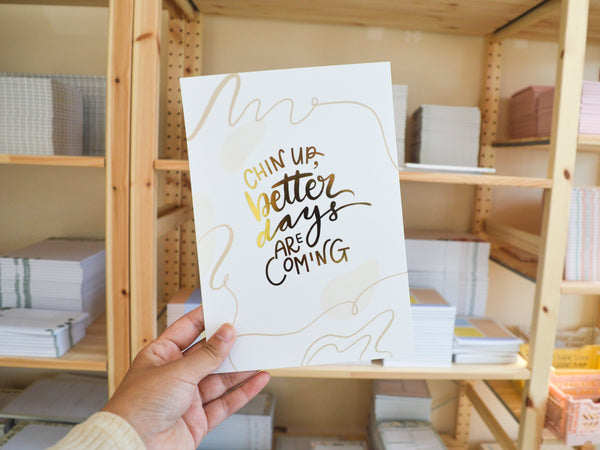 CHIN UP,
better
days
ARE
COMING